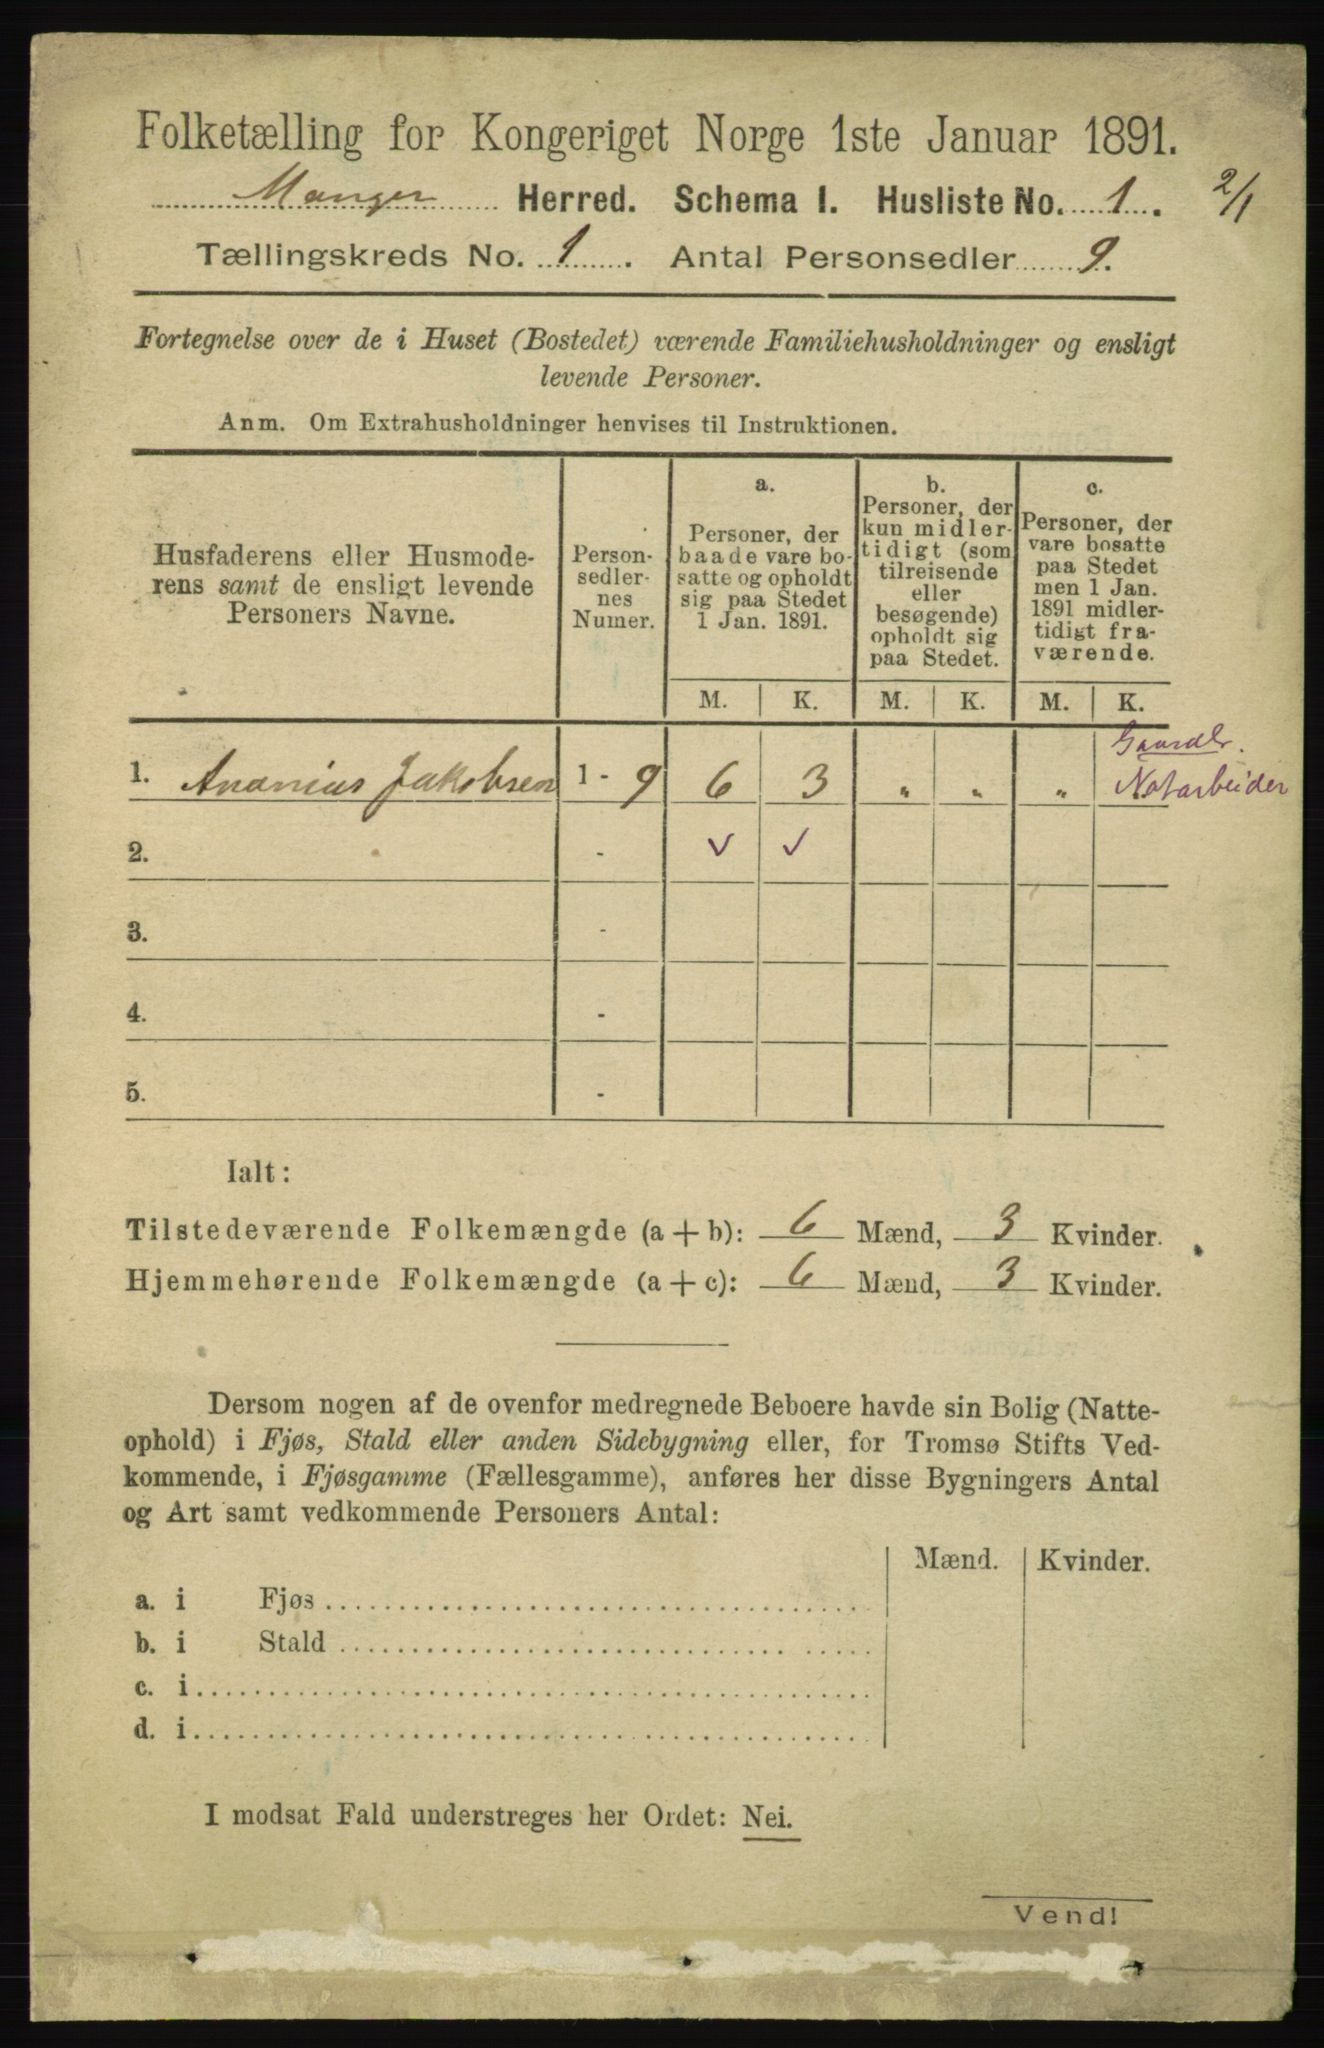 Folketælling for Kongeriget Norge 1ste Januar 1891.
Manger Herred. Schema I. Husliste No. 1. 2/1
Tællingskreds No. 1. Antal Personsedler 9.
Fortegnelse over de i Huset (Bostedet) værende Familiehusholdninger og ensligt
levende Personer.
Anm. Om Extrahusholdninger henvises til Instruktionen.
Husfaderens eller Husmode-
rens samt de ensligt levende
Personers Navne.
Person-
sedler-
nes
Numer.
a.
Personer, der
baade vare bo-
satte og opholdt
sig paa Stedet
1 Jan. 1891.
b.
Personer, der
kun midler-
tidigt (som
tilreisende
eller
besøgende)
opholdt sig
paa Stedet.
c.
Personer, der
vare bosatte
paa Stedet
men 1 Jan.
1891 midler-
tidigt fra-
værende.
M. K. M. K. M. K.
Gaardbr.
1. Ananias Jakobsen 1 - 9 6 3 " " " Notarbeider
2. - ✓ ✓
3. -
4. -
5. -
Ialt:
Tilstedeværende Folkemængde (a + b): 6 Mænd, 3 Kvinder.
Hjemmehørende Folkemængde (a + c): 6 Mænd, 3 Kvinder.
Dersom nogen af de ovenfor medregnede Beboere havde sin Bolig (Natte-
ophold) i Fjøs, Stald eller anden Sidebygning eller, for Tromsø Stifts Ved-
kommende, i Fjøsgamme (Fællesgamme), anføres her disse Bygningers Antal
og Art samt vedkommende Personers Antal:
Mænd. Kvinder.
a. i Fjøs
b. i Stald
c. i
d. i
I modsat Fald understreges her Ordet: Nei.
Vend!